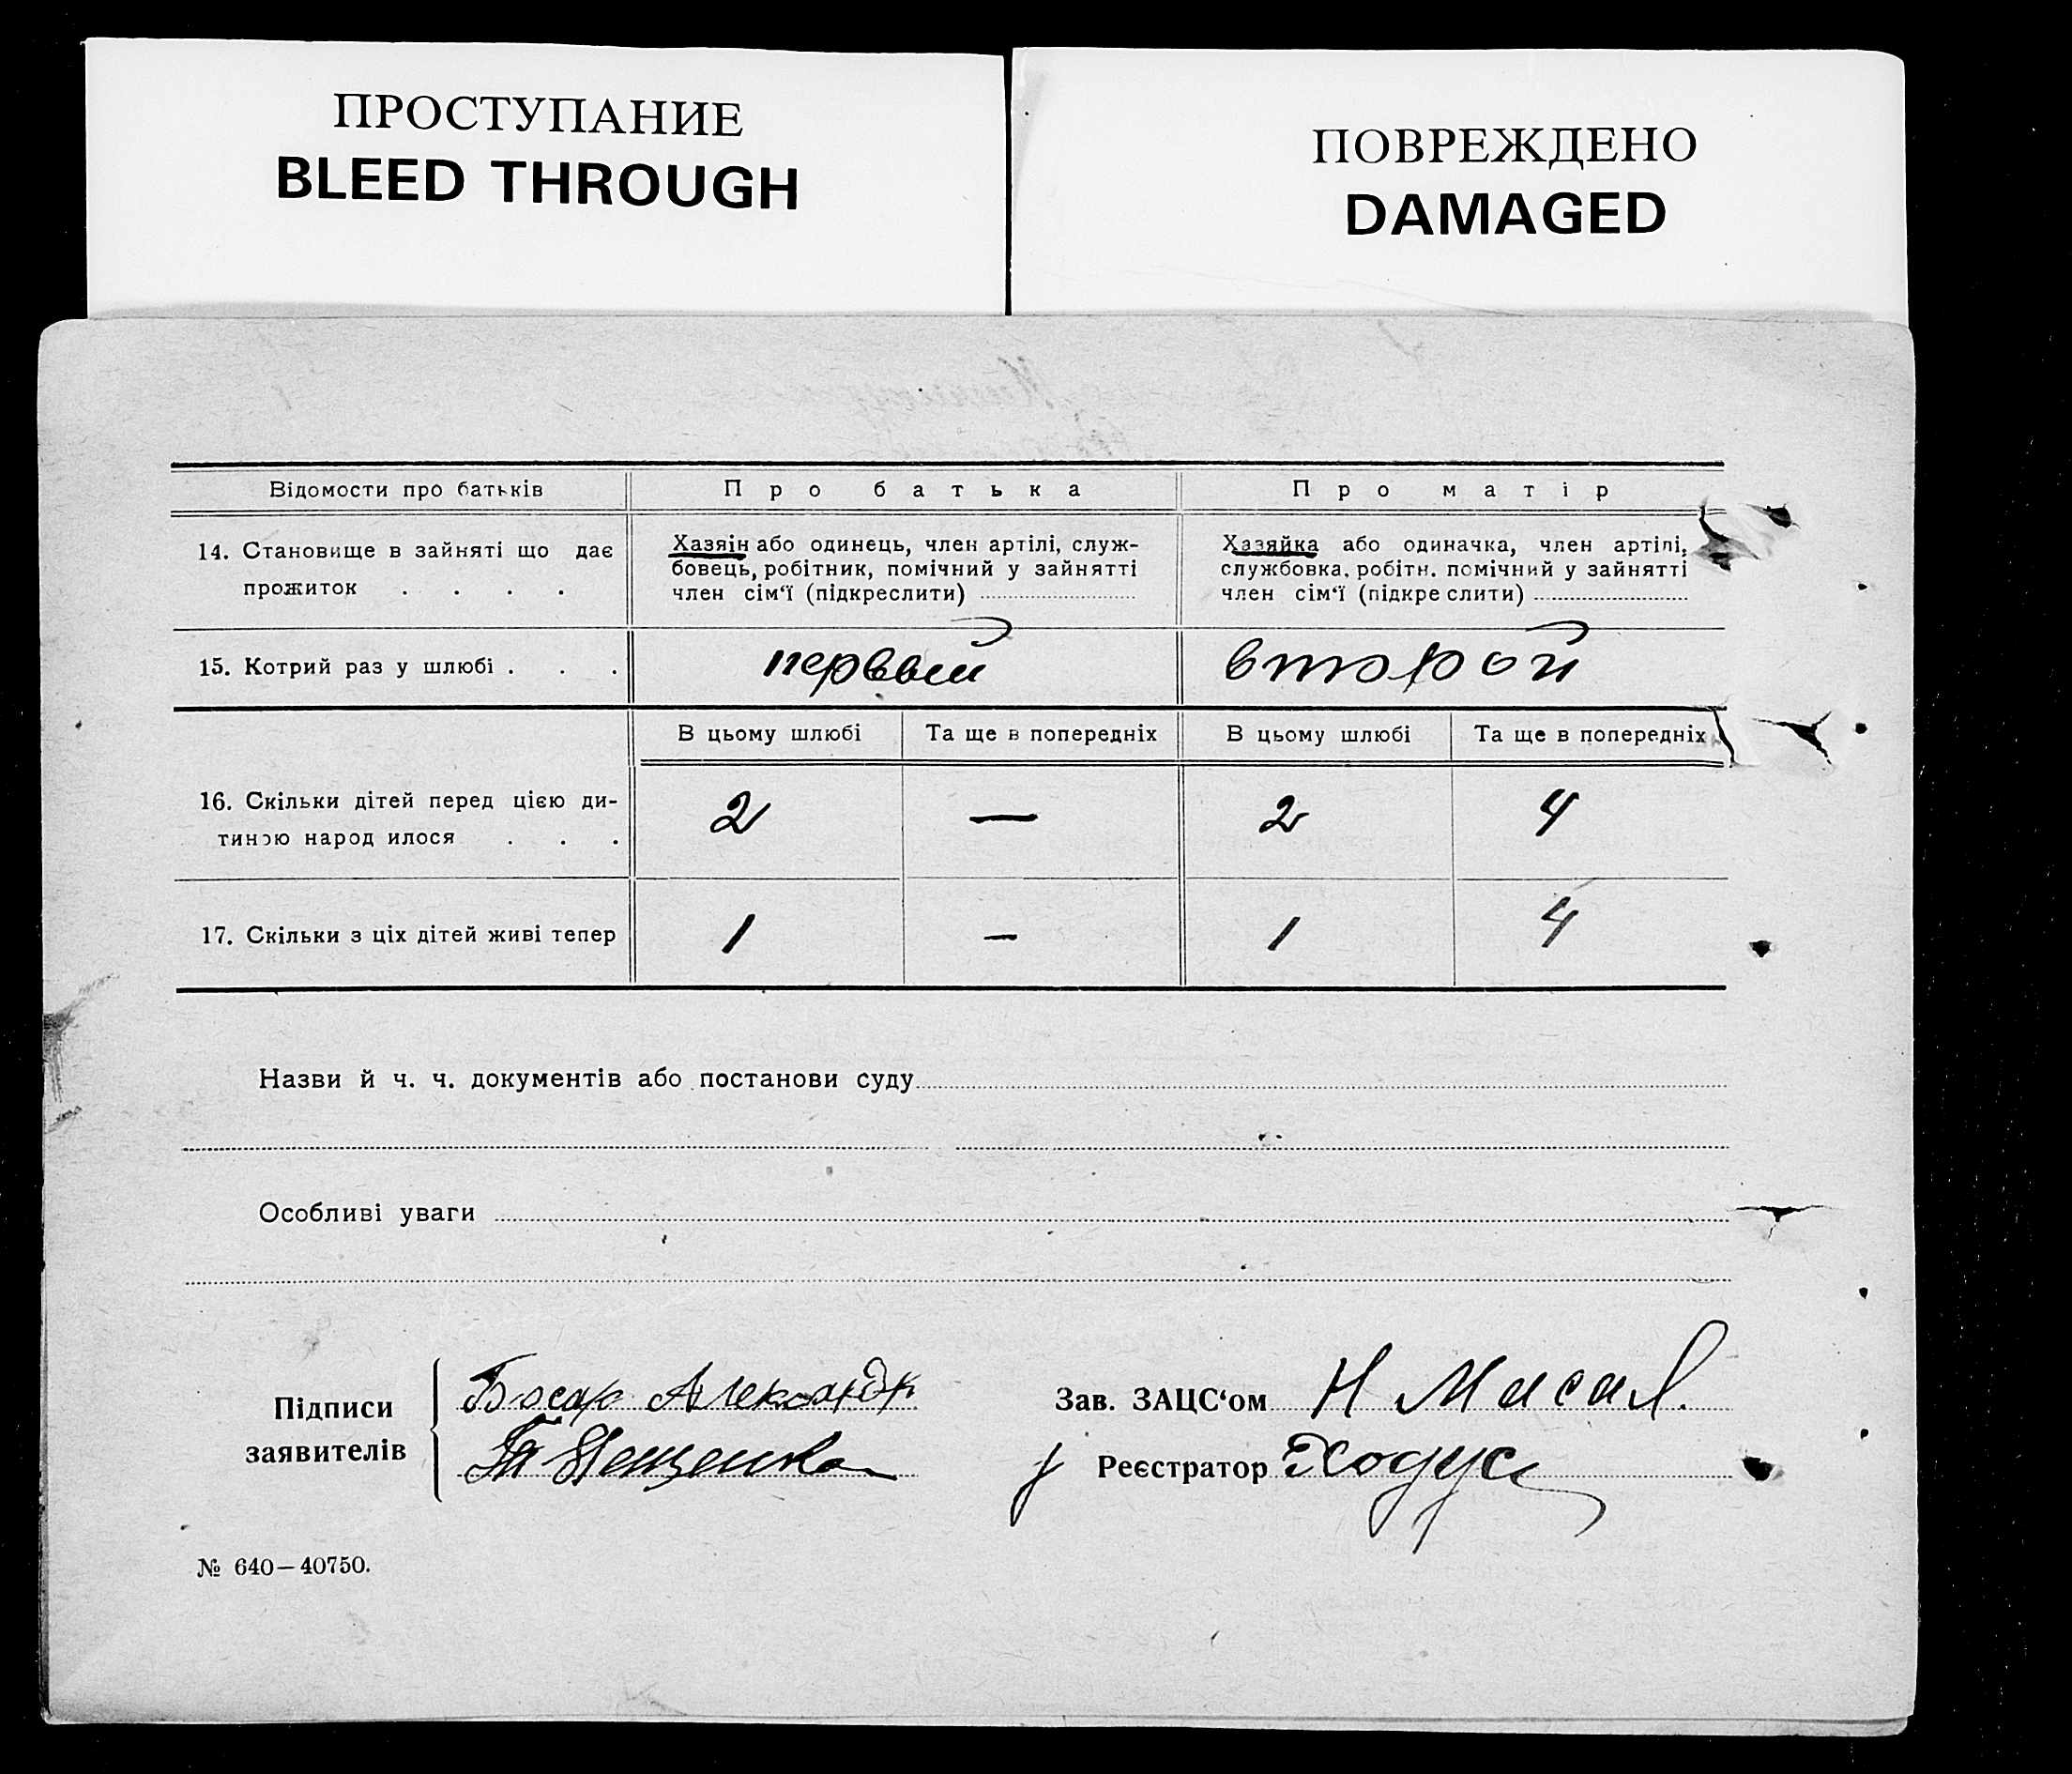 ПРОСТУПАНИЕ
BLEED THROUGH
ПОВРЕЖДЕНО
DAMAGED
Відомости про батьків Про батька Про матір
14. Становище в зайняті що дає
прожиток . . . .
Хазяін або одинець, член артілі, служ-
бовець, робітник, помічний у зайнятті
член сім‘ї (підкреслити)
Хазяйка або одиначка, член артілі,
службовка, робітн. помічний у зайнятті
член сім‘ї (підкреслити)
15. Котрий раз у шлюбі . . . первый второй
В цьому шлюбі Та ще в попередніх В цьому шлюбі Та ще в попередніх
16. Скільки дітей перед цією ди-
тиною народилося . . . 2 — 2 4
17. Скільки з ціх дітей живі тепер 1 — 1 4
Назви й ч. ч. документів або постанови суду
Особливі уваги
Підписи
заявителів
Зав. ЗАЦС‘ом Н
Реєстратор Ходус
№ 640—40750.